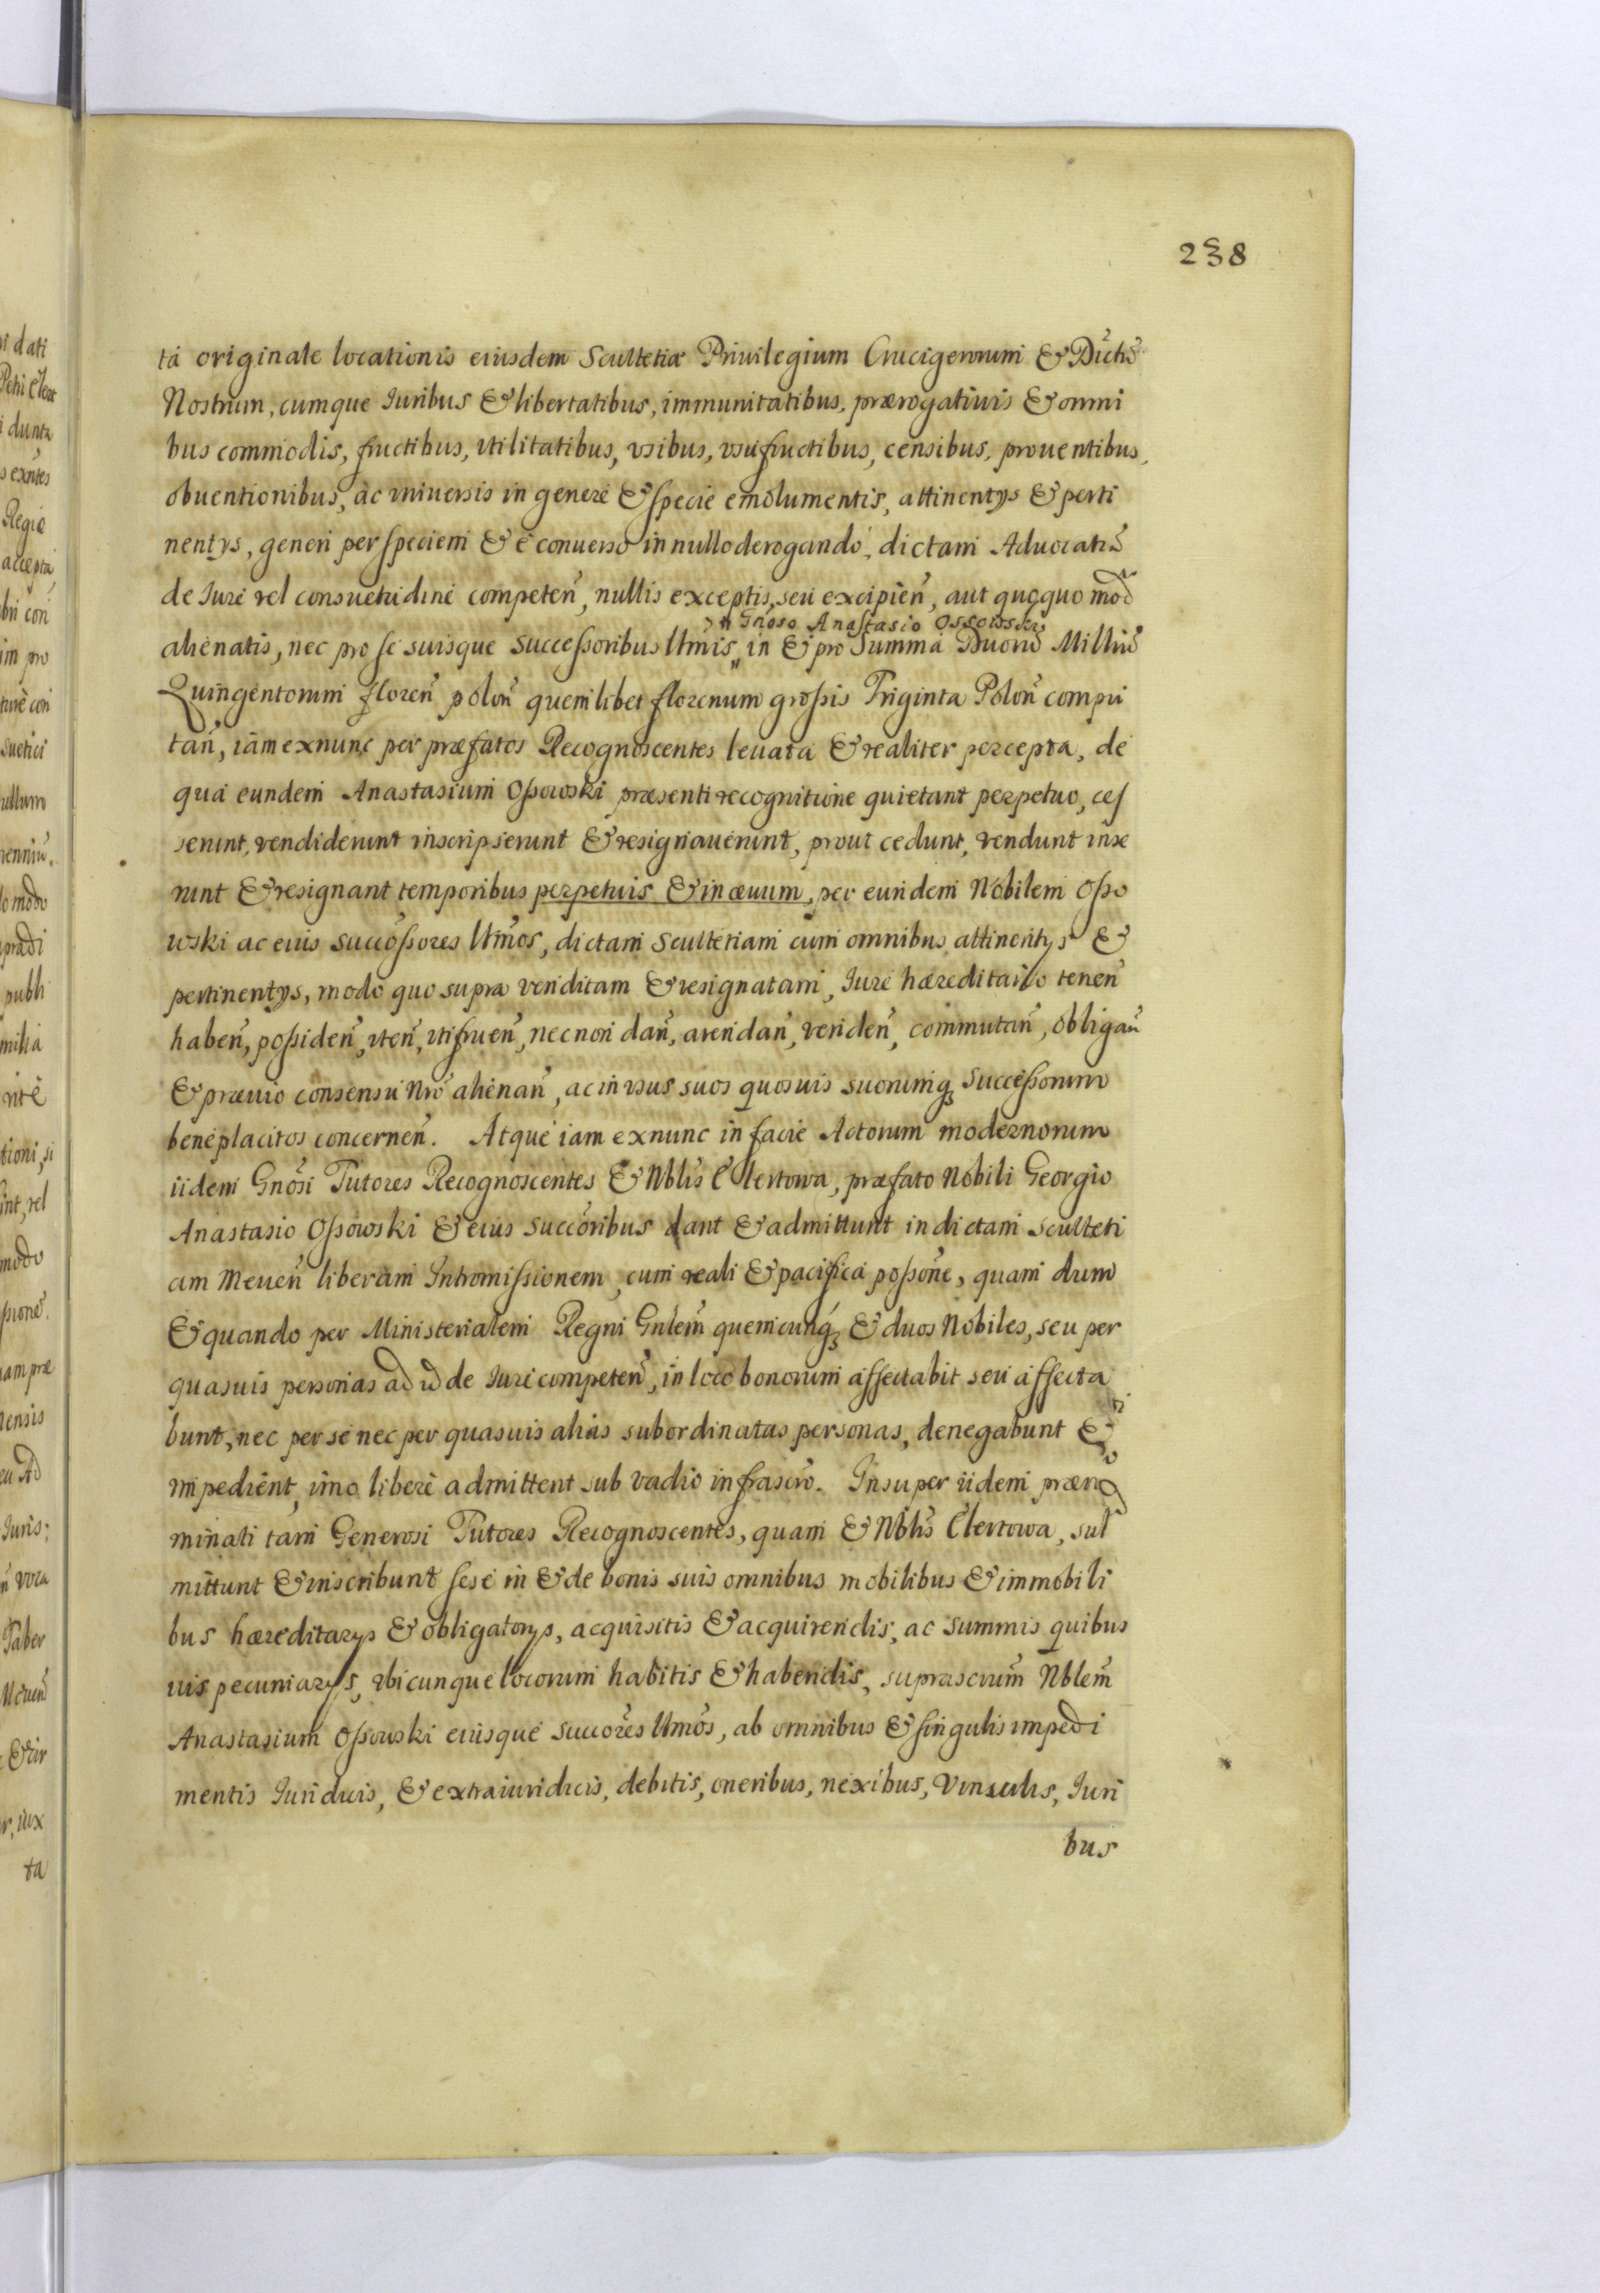 238
ta originale locationis eiusdem Scultetiæ Priuilegium Crucigerorum & Dictũ
Nostrum, cumque Iuribus & libertatibus, immunitatibus, prærogatiuis & omni
bus commodis, fructibus, vtilitatibus, vsibus, vsufructibus, censibus, prouentibus,
obuentionibus, ac vniuersis in genere & specie emolumentis, attinentys & perti
nentys, generi per speciem & è conuerso in nullo derogando, dictam Aduocatiã
de Iure vel consuetudine competeñ, nullis exceptis, seu excipieñ, aut quoquo mod̃
Gñoso Anastasio Ossowski
alienatis, nec pro se suisque Successoribus Ltm̃is, in & pro Summa Duorũ Milliũ
Quingentorum floreñ poloñ quemlibet florenum grossis Triginta Poloñ compu
tañ, iam exnunc per præfatos Recognoscentes leuata & realiter percepta, de
qua eundem Anastasium Ossowski præsenti recognitione quietant perpetuo, ces
serunt, vendiderunt inscripserunt & resignauerunt, prout cedunt, vendunt inse
runt & resignant temporibus perpetuis & in æuum, per eundem Nobilem Osso
wski ac eius successores Ltm̃os, dictam Scultetiam cum omnibus attinentys &
pertinentys, modo quo supra venditam & resignatam, Iure hæreditario teneñ
habeñ, possideñ, vteñ, vtifrueñ, necnon dañ, arendañ, vendeñ, commutañ, obligañ
& præuio consensu Nr̃o alienañ, ac in vsus suos quosuis suorumq3 Successorum
beneplacitos concerneñ. Atque iam exnunc in facie Actorum modernorum
iidem Gnõsi Tutores Recognoscentes & Nblĩs Elertowa, præfato Nobili Georgio
Anastasio Ossowski & eius succõribus dant & admittunt in dictam Sculteti
am Meueñ liberam Intromissionem, cum reali & pacifica possonẽ, quam dum
& quando per Ministerialem Regni Gnlem̃ quemcunq3 & duos Nobiles, seu per
quasuis personas ad id de Iure competeñ, in loco bonorum affectabit seu affecta
bunt, nec per se nec per quasuis alias subordinatas personas, denegabunt &
impedient, imo liberè admittent sub vadio infrascr̃o. Insuper iidem præno
minati tam Generosi Tutores Recognoscentes, quam & Nblĩs Elertowa, sub
mittunt & inscribunt sese in & de bonis suis omnibus mobilibus & immobili
bus hæreditarys & obligatorys, acquisitis & acquirendis, ac summis quibus
uis pecuniarys, vbicunque locorum habitis & habendis, suprascrum̃ Nblem̃
Anastasium Ossowski eiusque succorẽs Ltmõs, ab omnibus & singulis impedi
mentis Iuridicis, & extraiuridicis, debitis, oneribus, nexibus, vinculis, Iuri
bus